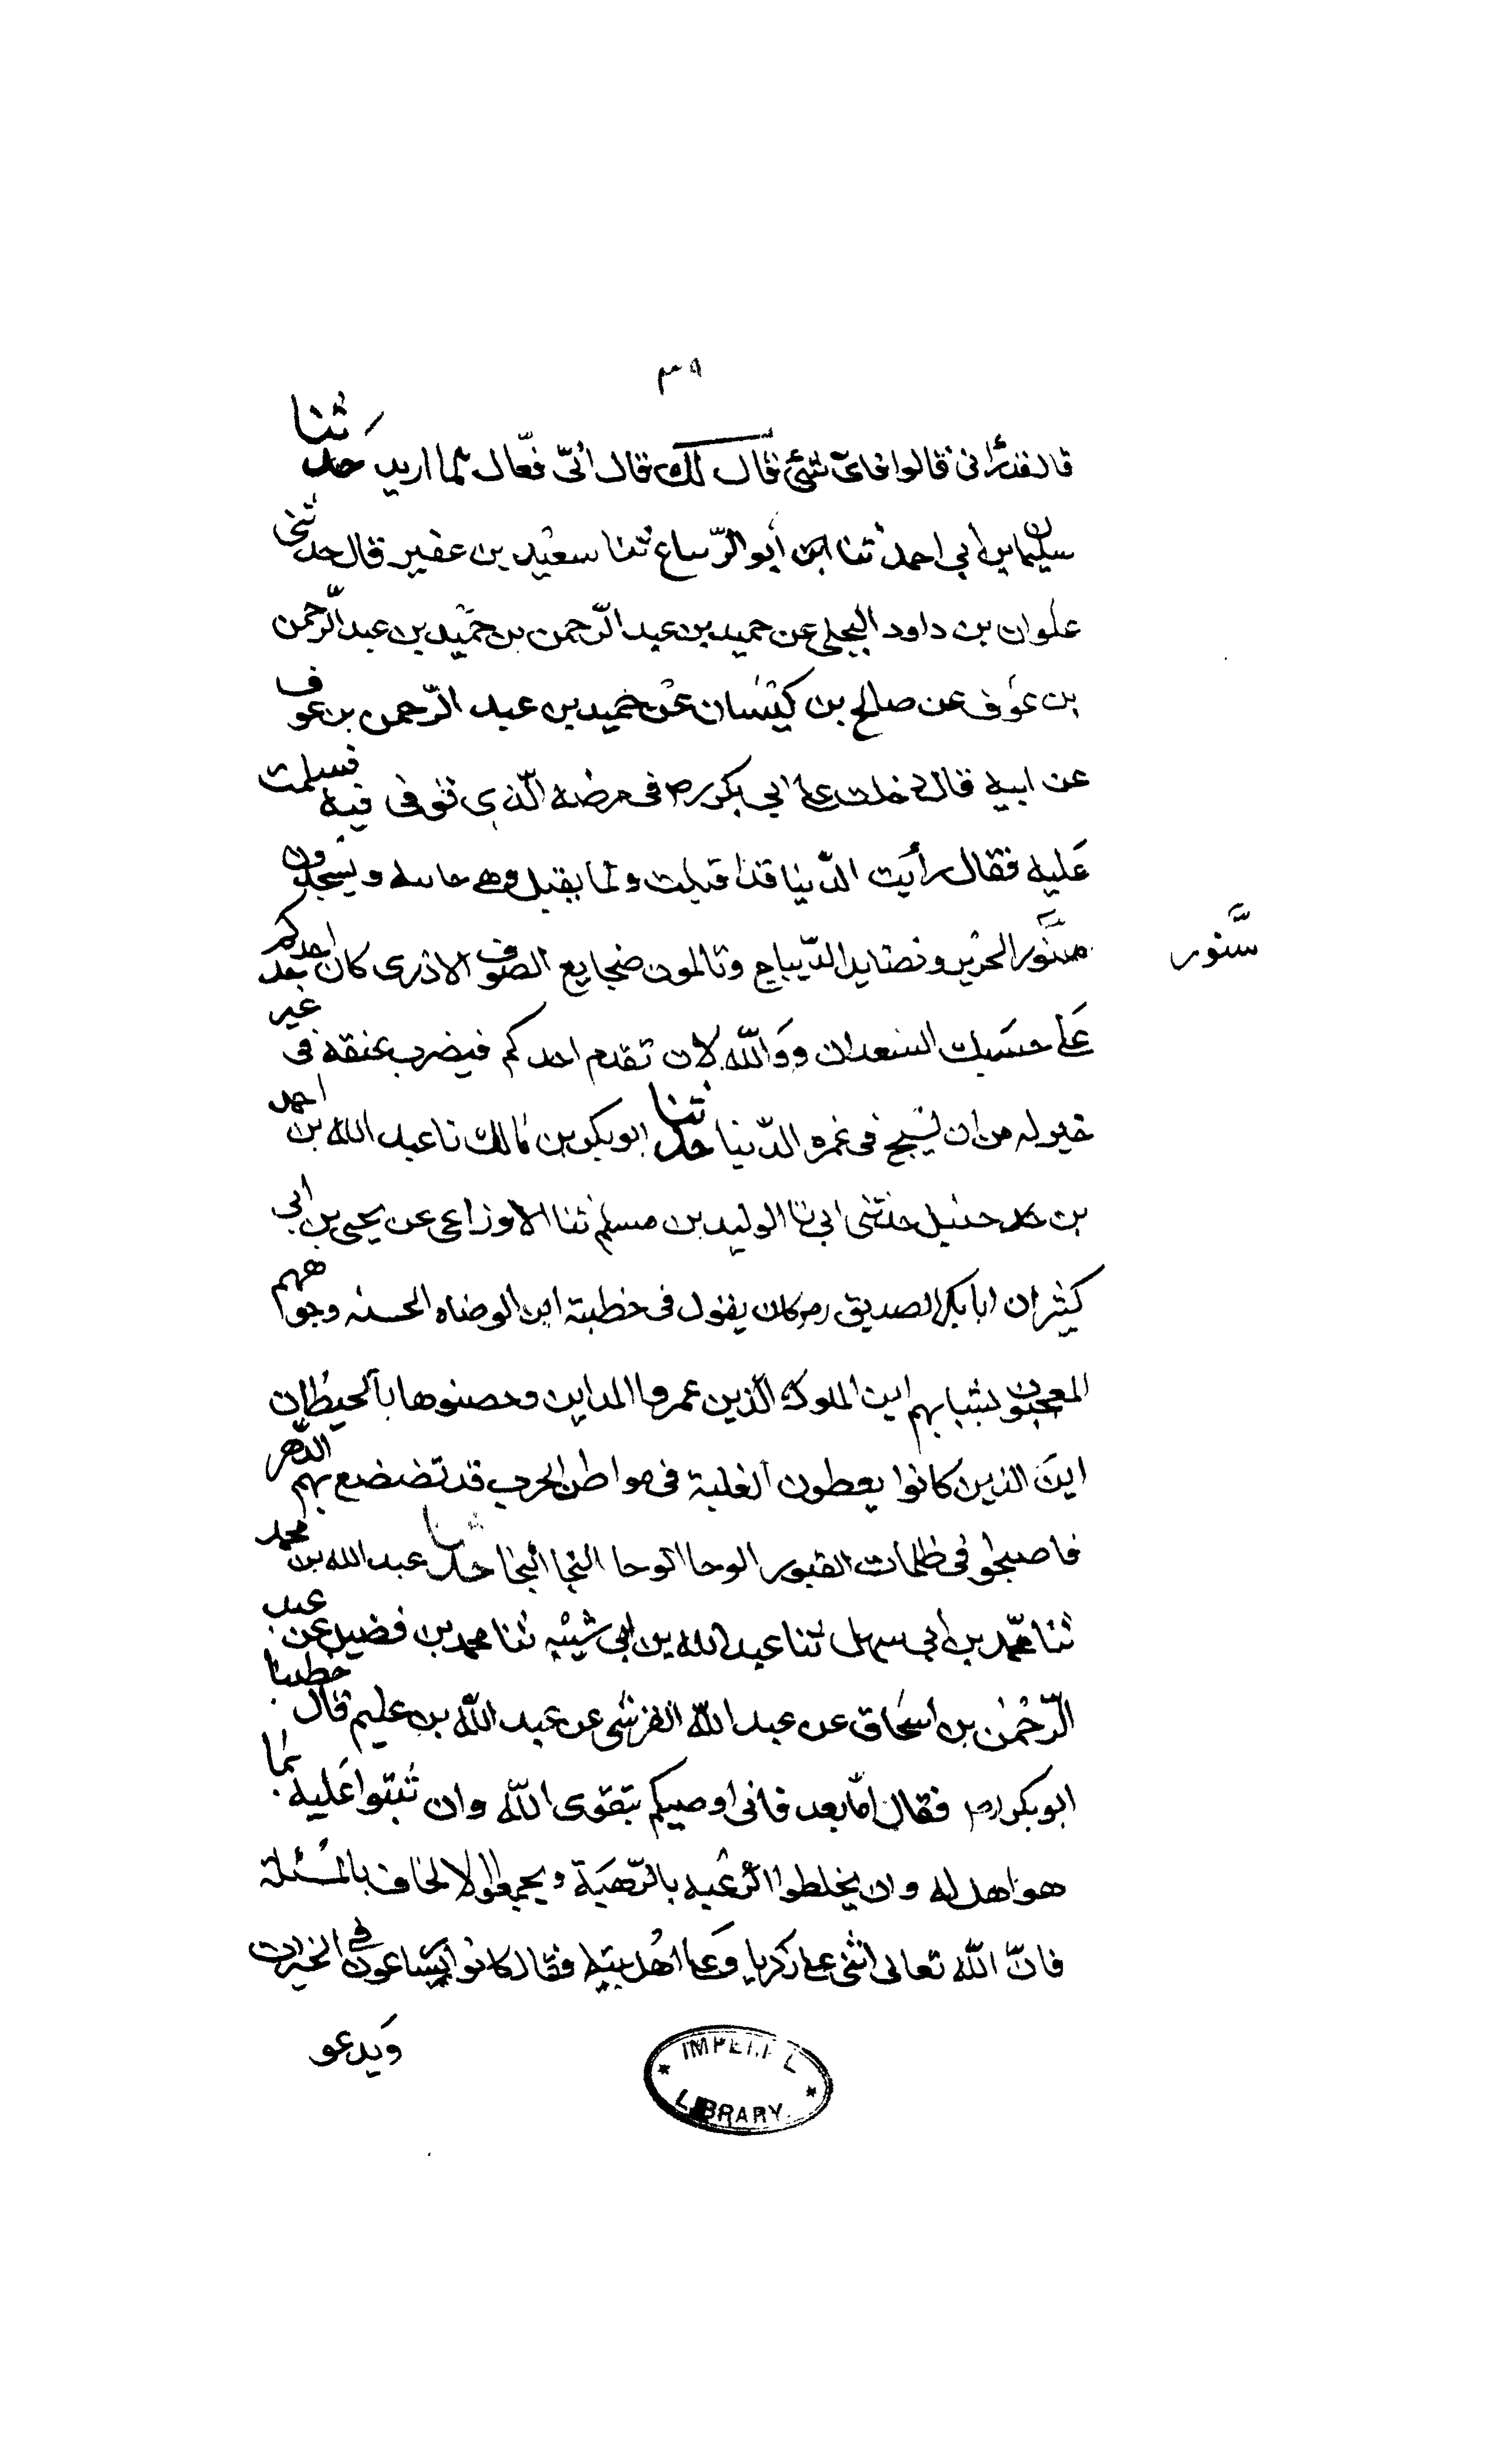 ٣٩
قال قد رآنى قالوا فاى شئ قال لك قال انّى فعّال لما اريد حدثنا
سليمان بن أبي احمد ثنا ابو الرّساع ثنا سعيد بن عفير قال حدثنى
علوان بن داود البجلى عن حميد بن عبد الرّحمن بن حميد بن عبد الرّحمن
بن عوف عن صالح بن كيسان عن حميد بن عبد الرّحمن بن عوف
عن ابيه قال دخلت على ابي بكر رم فى مرضه الّذى توفى فيه فسلمت
عليه فقال رأيت الدّنيا قد اقبلت ولما يقبل وهى حاسه ويسجدون
ستور الحرير ونضايد الدّيباج وتالمون ضجايع الصوف الاذرى كان احدكم
سّتور
على حسبك السعدان ووالله لان تقدم احدكم فيضرب عنقه فى غير
خير له من ان يسبح فى غمره الدّنيا حدثنا ابو بكر بن مالك نا عبد الله بن احمد
بن حنبل حدثنى ابي نا الوليد بن مسلم ثنا الاوزاعى عن يحيى بن ابى
كثير ان ابا بكر الصديق رم كان يقول فى خطبته اين الوضاه الحسنه وجوههم
المعجبون بشبابهم اين الملوك الّذين عمروا المداين وحصنوها بالحيطان
اين الذين كانوا يعطون الغلبة فى مواطن الحرب قد تضعضع بهم الدّهر
فاصبحوا فى ظلمات القبور الوحا الوحا النجا النجا حدثنا عبد الله بن محمد
ثنا محمّد بن أبى سهل ثنا عبد الله بن ابى شيبه ثنا محمد بن فضيل عن عبد
الرّحمٰن بن اسحاق عن عبد الله القرشى عن عبد الله بن عليم قال خطبنا
ابو بكر رم فقال امّا بعد فانى اوصيكم بتقوى الله وان تثنوا عليه بما
هو اهل له وان يخلطوا الرّغبه بالرّهبة ويجمعوا الالحاف بالمسئلة
فانّ الله تعالى اثنى على زكريا وعلى اهل بيته فقال كانوا يسارعون فى الخيرات
ويدعو
IMPERIAL LIBRARY